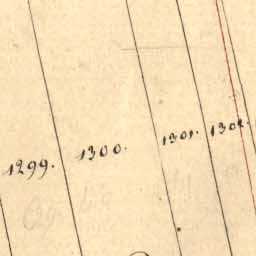 1299. 1300. 1301. 1302.